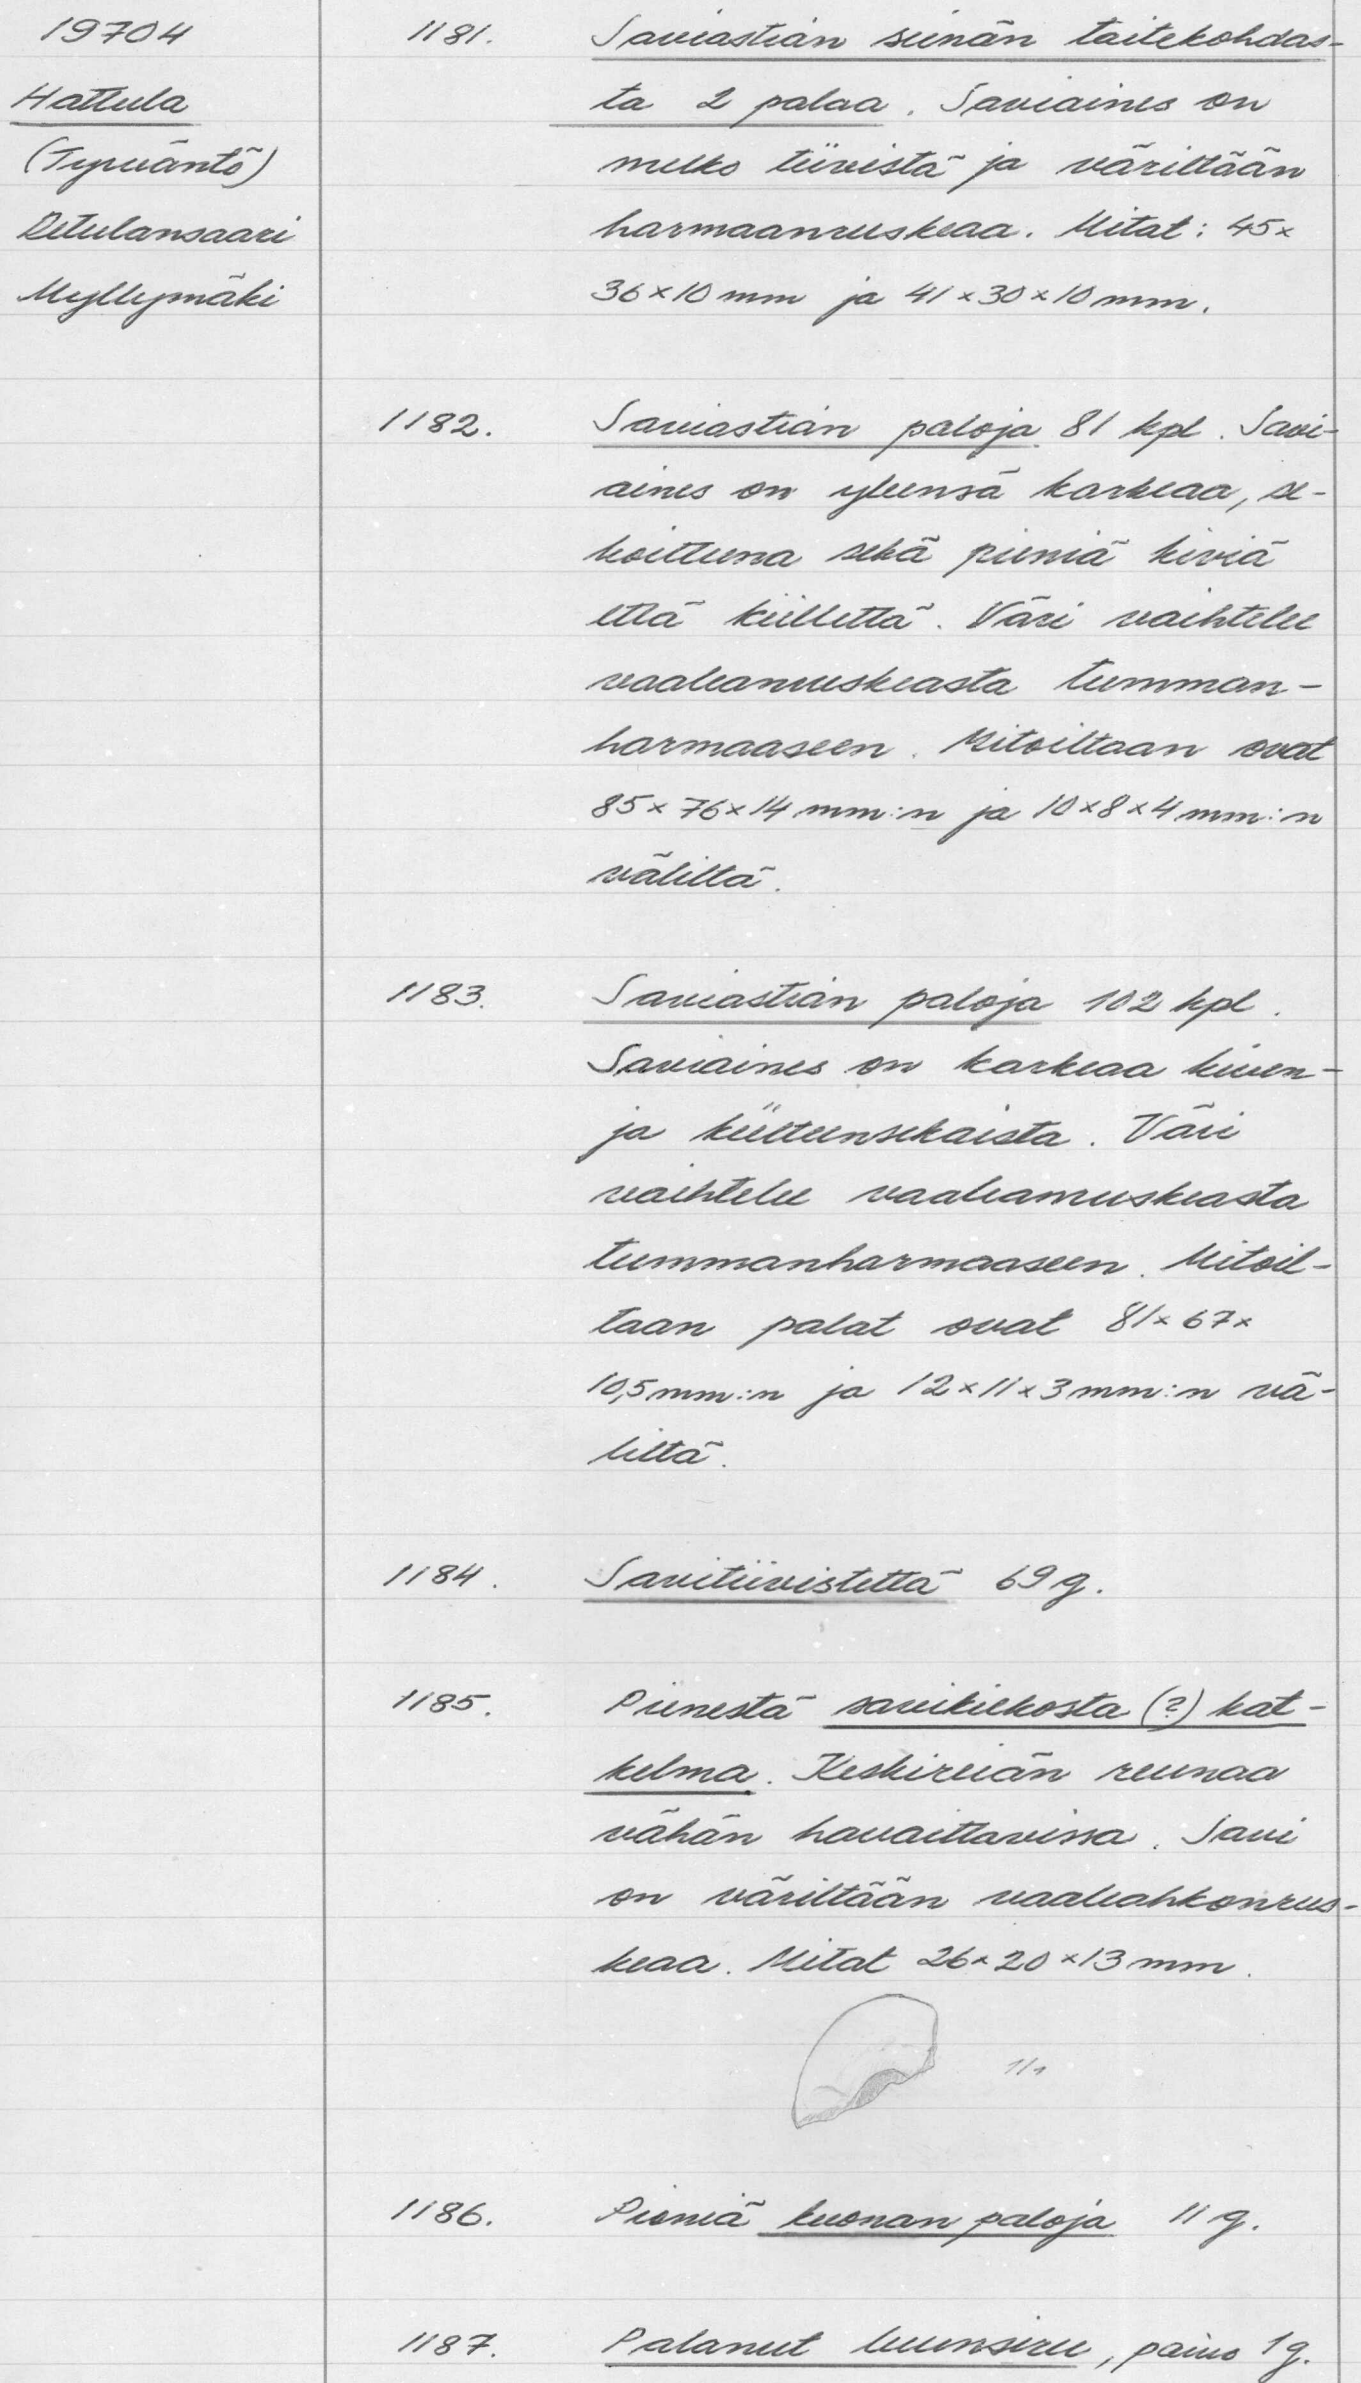 19704
Hattula
(Tyrväntö)
Retulansaari
Myllymäki
1181. Saviastian seinän taitekohdas-
ta 2 palaa. Saviaines on
melko tiivistä ja väriltään
harmaanruskeaa. Mitat: 45×
36×10 mm ja 41×30×10 mm.
1182. Saviastian paloja 81 kpl. Savi-
aines on yleensä karkeaa, se-
koittuna sekä pieniä kiviä
että kiillettä. Väri vaihtelee
vaaleanruskeasta tumman-
harmaaseen. Mitoiltaan ovat
85×76×14 mm:n ja 10×8×4 mm:n
väliltä.
1183. Saviastian paloja 102 kpl.
Saviaines on karkeaa kiven-
ja kiilteensekaista. Väri
vaihtelee vaaleanruskeasta
tummanharmaaseen. Mitoil-
taan palat ovat 81×67×
10,5 mm:n ja 12×11×3 mm:n vä-
liltä.
1184. Savitiivistettä 69 g.
1185. Pienestä savikiekosta (?) kat-
kelma. Keskireiän reunaa
vähän havaittavissa. Savi
on väriltään vaaleahkonrus-
keaa. Mitat 26×20×13 mm.
1/1
1186. Pieniä kuonan paloja 11 g.
1187. Palanut luunsiru, paino 1 g.